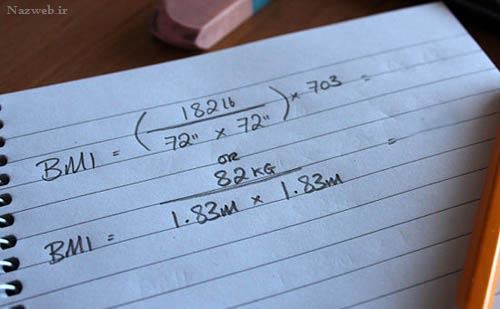 Nazweb.ir
BMI = (182lb / 72" × 72") × 703 =
OR
BMI = 82KG / 1.83m × 1.83m =